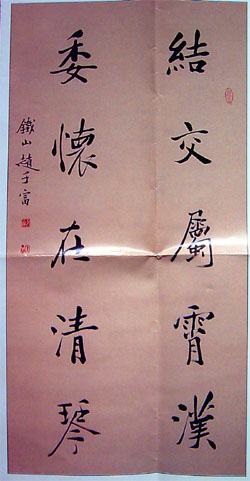 結交屬霄漢
委懷在清琴
鐵山趙于富